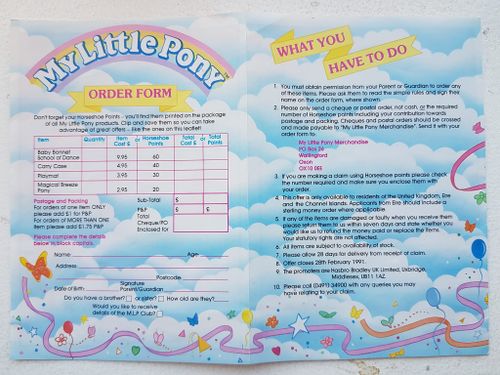 My Little Pony
ORDER FORM
Don't forget your Horseshoe Points - you'll find them printed on the package
of all My Little Pony products. Clip and save them so you can take
advantage of great offers - like the ones on this leaflet!
Item Quantity Item Cost £ or Horseshoe Points Total Cost £ or Total Points
Baby Bonnet
School of Dance 9.95 60
Carry Case 4.95 40
Playmat 3.95 30
Magical Breeze
Pony 2.95 20
Postage and Packing
For orders of one item ONLY
please add £1 for P&P
For orders of MORE THAN ONE
item please add £1.75 P&P
Please complete the details
below in block capitals.
Sub-Total £
P&P £ £
Total
Cheque/PO
Enclosed for
Name
Address
Postcode
Signature
Date of Birth Parent/Guardian
Do you have a brother? or sister? How old are they?
Would you like to receive
details of the M.L.P Club?
WHAT YOU
HAVE TO DO
1. You must obtain permission from your Parent or Guardian to order any
of these items. Please ask them to read the simple rules and sign their
name on the order form, where shown.
2. Please only send a cheque or postal order, not cash, or the required
number of Horseshoe Points including your contribution towards
postage and packing. Cheques and postal orders should be crossed
and made payable to "My Little Pony Merchandise". Send it with your
order form to:
My Little Pony Merchandise
PO Box 26
Wallingford
Oxon
OX10 0EE
3. If you are making a claim using Horseshoe points please check
the number required and make sure you enclose them with
your order.
4. This offer is only available to residents of the United Kingdom, Eire
and the Channel Islands. Applicants from Eire should include a
sterling money order where applicable.
5. If any of the items are damaged or faulty when you receive them
please return them to us within seven days and state whether you
would like us to refund the money paid or replace the items.
Your statutory rights are not affected.
6. All items are subject to availability of stock.
7. Please allow 28 days for delivery from receipt of claim.
8. Offer closes 28th February 1991.
9. The promoters are Hasbro Bradley UK Limited, Uxbridge,
Middlesex, UB11 1AZ.
10. Please call (0491) 34900 with any queries you may
have relating to your claim.